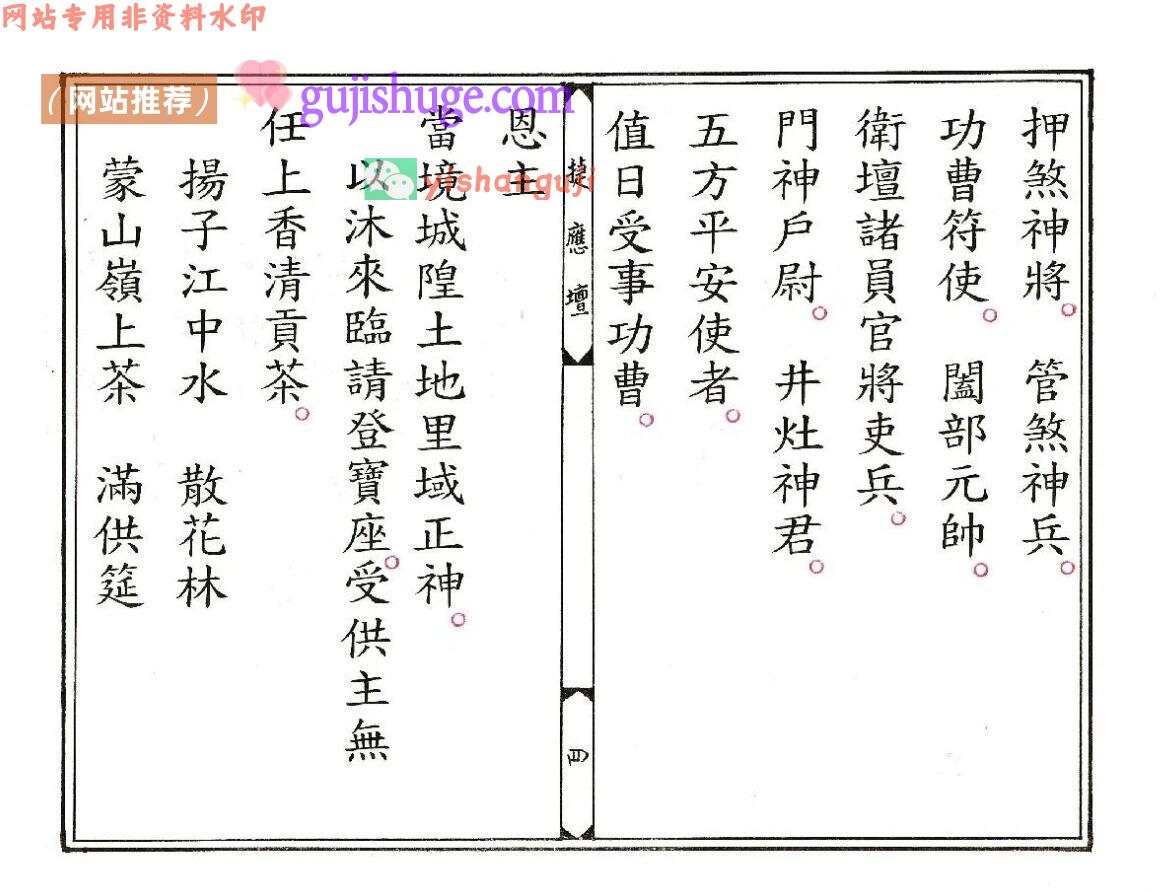 网站专用非资料水印
（网站推荐）
gujishuge.com
yishanguji
押煞神將。 管煞神兵。
功曹符使。 闔部元帥。
衛壇諸員官將吏兵。
門神戶尉。 井灶神君。
五方平安使者。
值日受事功曹。
捷應壇
四
恩主
當境城隍土地里域正神。
以沐來臨請登寶座。受供主無
任上香清貢茶。
揚子江中水 散花林
蒙山嶺上茶 滿供筵